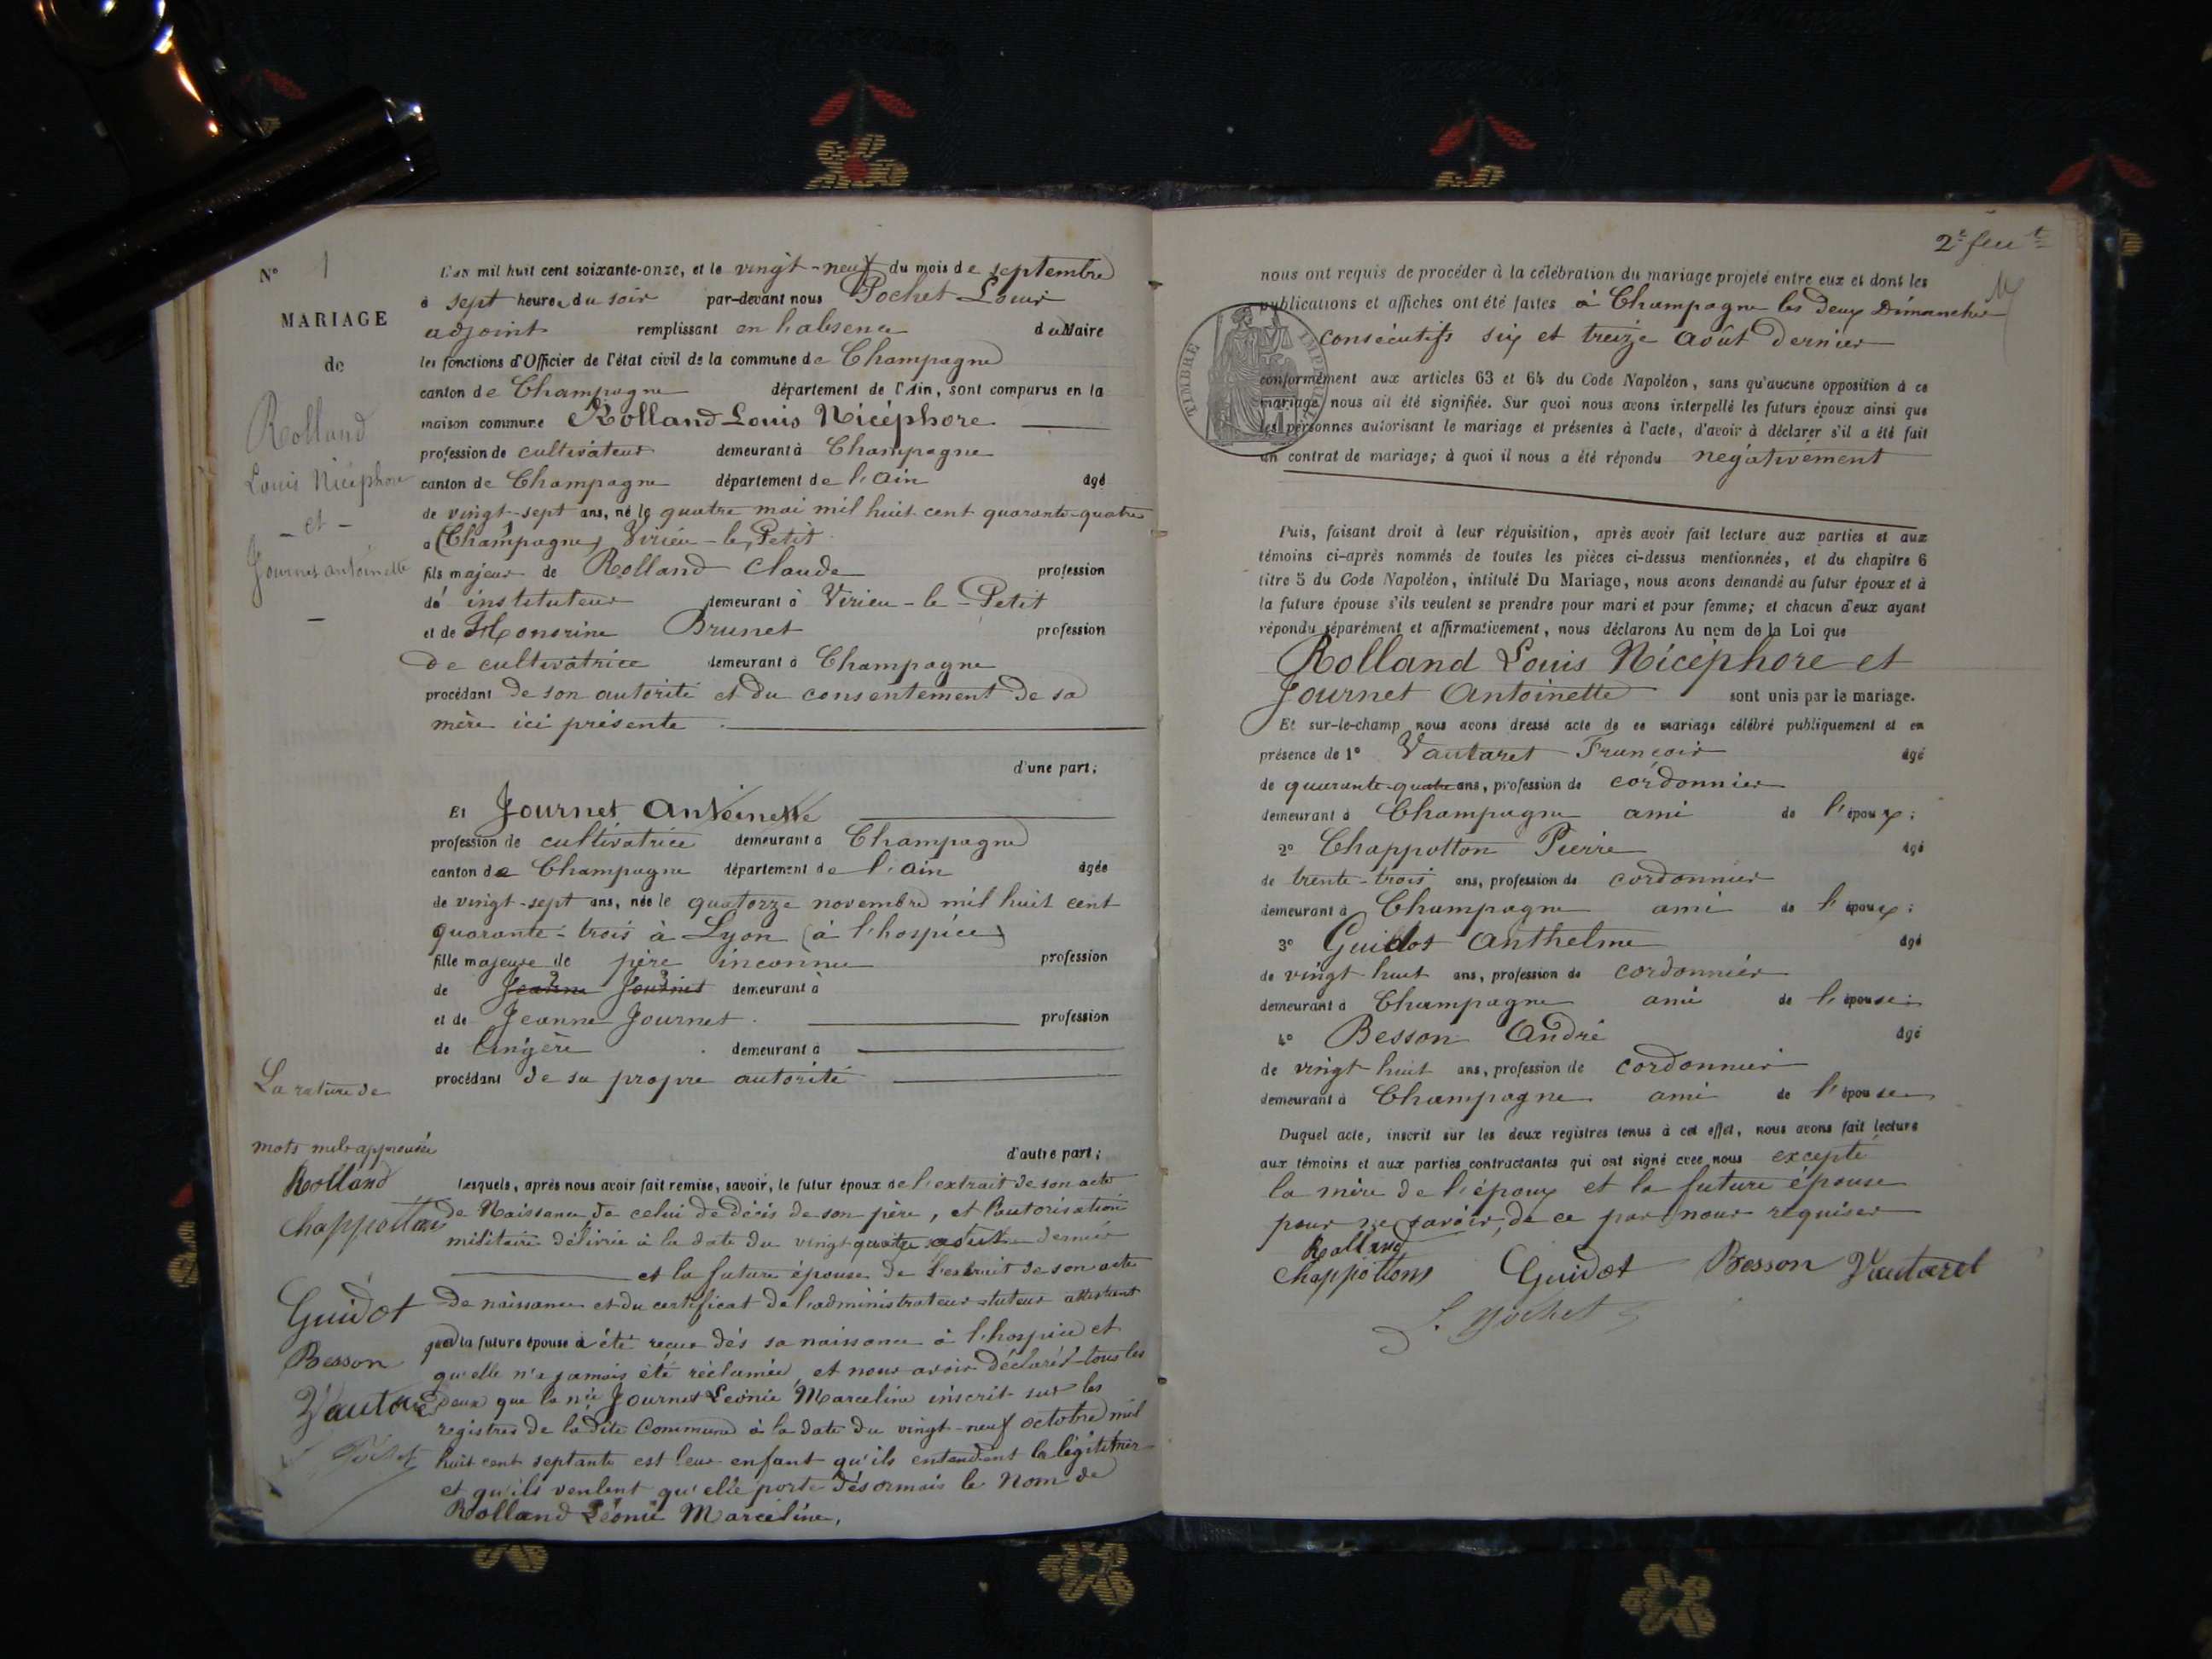 N° 1
MARIAGE
de
Rolland
Louis Nicéphore
- et -
Journet antoinette
L'an mil huit cent soixante-onze, et le vingt-neuf du mois de septembre
à sept heures du soir par-devant nous Pochet Louis
adjoint remplissant en l'absence du Maire
les fonctions d'Officier de l'état civil de la commune de Champagne
canton de Champagne département de l'Ain, sont comparus en la
maison commune Rolland Louis Nicéphore
profession de cultivateur demeurant à Champagne
canton de Champagne département de l'ain âgé
de vingt-sept ans, né le quatre mai mil huit cent quarante-quatre
a (Champagne) Virieu-le-Petit
fils majeur de Rolland Claude profession
de instituteur demeurant à Virieu-le-Petit
et de Honorine Brunet profession
de cultivatrice demeurant à Champagne
procédant de son autorité et du consentement de sa
mère ici présente.
d'une part;
Et Journet Antoinette
profession de cultivatrice demeurant à Champagne
canton de Champagne département de l'ain âgée
de vingt-sept ans, née le quatorze novembre mil huit cent
quarante-trois à Lyon (à l'hospice)
fille majeure de père inconnu profession
de Jeanne Journet demeurant à
et de Jeanne Journet. profession
de lingère demeurant à
procédant de sa propre autorité
d'autre part;
La rature de
mots nuls approuvée
Rolland
Chappotton
Guidot
Besson
Vautaret
Pochet
lesquels, après nous avoir fait remise, savoir, le futur époux de l'extrait de son acte
de Naissance de celui de décès de son père, et l'autorisation
militaire délivrée à la date du vingt quatre août dernier
et la future épouse de l'extrait de son acte
de naissance et du certificat de l'administrateur-tuteur attestant
que la future épouse a été reçue dès sa naissance à l'hospice et
qu'elle n'a jamais été réclamée, et nous avoir déclaré tous les
deux que la née Journet Léonie Marceline inscrit sur les
registres de la dite Commune à la date du vingt-neuf octobre mil
huit cent septante est leur enfant qu'ils entendent la légitimer
et qu'ils veulent qu'elle porte désormais le Nom de
Rolland Léonie Marceline.
2e feuet
nous ont requis de procéder à la célébration du mariage projeté entre eux et dont les
publications et affiches ont été faites à Champagne les deux Dimanches
consécutifs six et treize août dernier
TIMBRE IMPERIAL
conformément aux articles 63 et 64 du Code Napoléon, sans qu'aucune opposition à ce
mariage nous ait été signifiée. Sur quoi nous avons interpellé les futurs époux ainsi que
les personnes autorisant le mariage et présentes à l'acte, d'avoir à déclarer s'il a été fait
un contrat de mariage; à quoi il nous a été répondu négativement
Puis, faisant droit à leur réquisition, après avoir fait lecture aux parties et aux
témoins ci-après nommés de toutes les pièces ci-dessus mentionnées, et du chapitre 6
titre 5 du Code Napoléon, intitulé Du Mariage, nous avons demandé au futur époux et à
la future épouse s'ils veulent se prendre pour mari et pour femme; et chacun d'eux ayant
répondu séparément et affirmativement, nous déclarons Au nom de la Loi que
Rolland Louis Nicéphore et
Journet Antoinette sont unis par le mariage.
Et sur-le-champ nous avons dressé acte de ce mariage célébré publiquement et en
présence de 1° Vautaret François âgé
de quarante-quatre ans, profession de cordonnier
demeurant à Champagne ami de l'époux;
2° Chappotton Pierre âgé
de trente-trois ans, profession de cordonnier
demeurant à Champagne ami de l'époux;
3° Guidot Anthelme âgé
de vingt-huit ans, profession de cordonnier
demeurant à Champagne ami de l'épouse;
4° Besson André âgé
de vingt-huit ans, profession de cordonnier
demeurant à Champagne ami de l'épouse
Duquel acte, inscrit sur les deux registres tenus à cet effet, nous avons fait lecture
aux témoins et aux parties contractantes qui ont signé avec nous excepté
la mère de l'époux et la future épouse
pour ne savoir, de ce par nous réquises
Rolland
Chappotton Guidot Besson Vautaret
L. Pochet